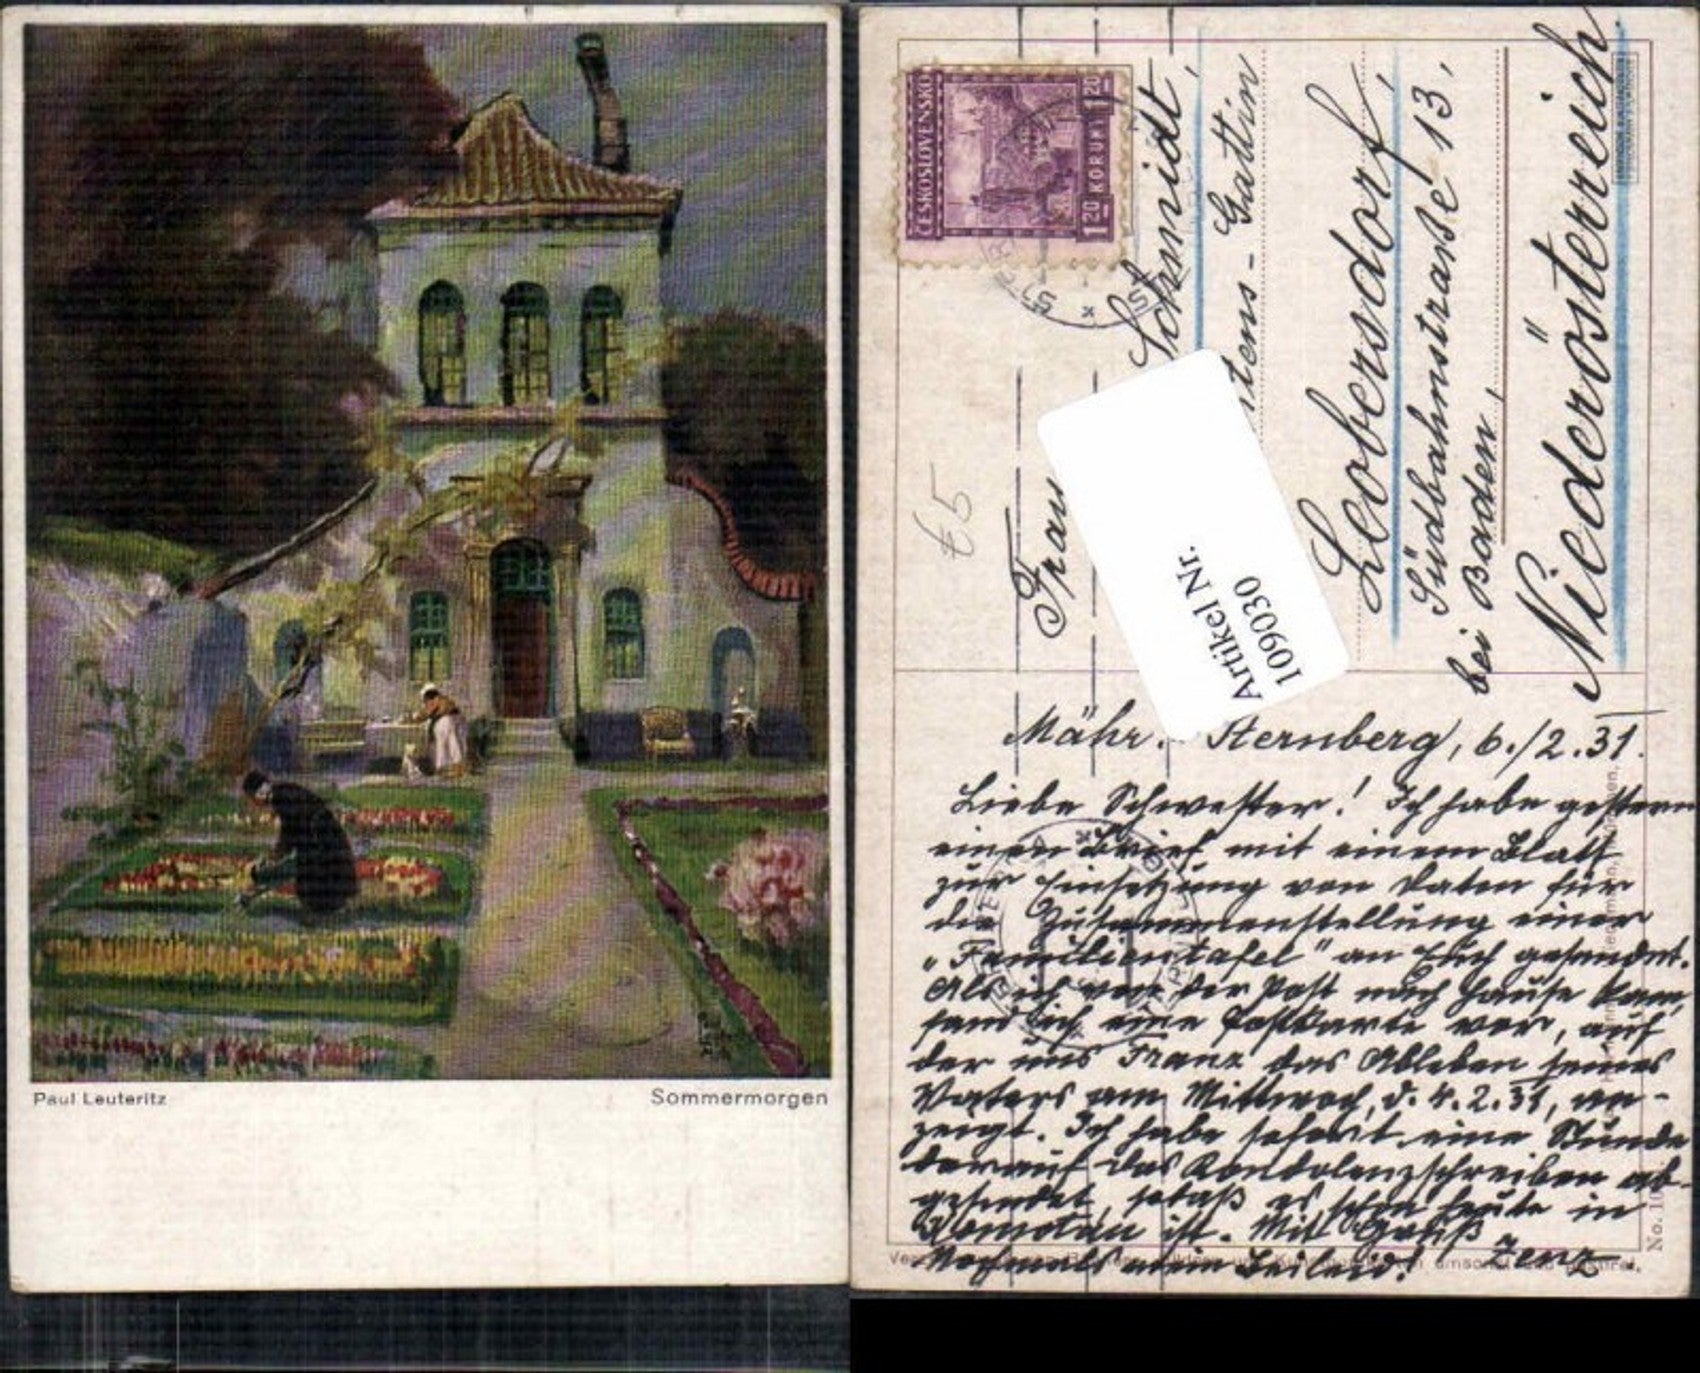 Paul Leuteritz
Sommermorgen
ČESKOSLOVENSKO
1.20 KORUN 1.20
€5
Frau Schmidt,
Gattin
Leobersdorf,
Südbahnstraße 13,
bei Baden,
Niederösterreich
Artikel Nr.
109030
Mähr. Sternberg, 6./2.31.
Liebe Schwester! Ich habe gestern
einen Brief mit einem Blatt
zur Einsetzung von Daten für
die Zusammenstellung einer
„Familientafel" an Euch gesendet.
Als ich von der Post nach Hause kam,
fand ich eine Postkarte vor, auf
der uns Franz das Ableben seines
Vaters am Mittwoch, d. 4.2.31, an-
zeigt. Ich habe sofort eine Stunde
darauf das Kondolenzschreiben ab-
gesendet, sodaß es schon heute in
Komotau ist. Mit Gruß
Nochmals mein Beileid! Zenz